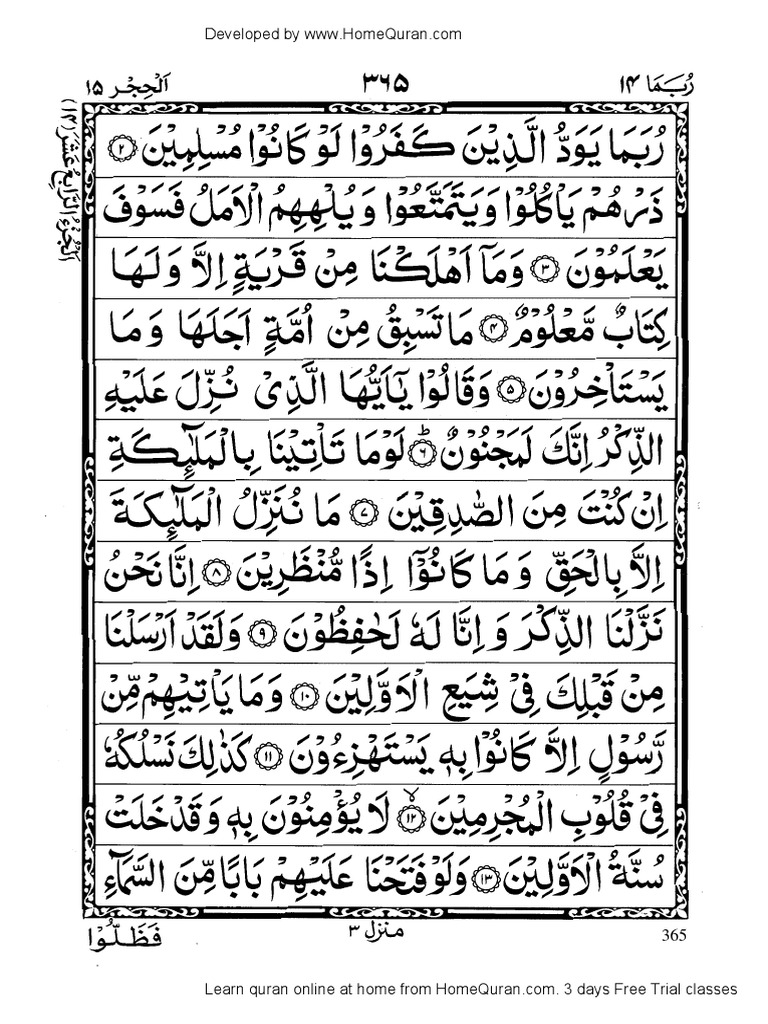 Developed by www.HomeQuran.com
رُبَمَا ١۴
٣٦۵
اَلْحِجْر ١۵
اَلْجُزْءُ الرَّابِعُ عَشَرَ (١۴)
رُبَمَا يَوَدُّ الَّذِيْنَ كَفَرُوْا لَوْ كَانُوْا مُسْلِمِيْنَ ۝٢
ذَرْهُمْ يَاْكُلُوْا وَيَتَمَتَّعُوْا وَيُلْهِهِمُ الْاَمَلُ فَسَوْفَ
يَعْلَمُوْنَ ۝٣ وَمَآ اَهْلَكْنَا مِنْ قَرْيَةٍ اِلَّا وَلَهَا
كِتَابٌ مَّعْلُوْمٌ ۝۴ مَا تَسْبِقُ مِنْ اُمَّةٍ اَجَلَهَا وَمَا
يَسْتَاْخِرُوْنَ ۝۵ وَقَالُوْا يٰٓاَيُّهَا الَّذِيْ نُزِّلَ عَلَيْهِ
الذِّكْرُ اِنَّكَ لَمَجْنُوْنٌ ۝٦ؕ لَوْمَا تَاْتِيْنَا بِالْمَلٰٓئِكَةِ
اِنْ كُنْتَ مِنَ الصّٰدِقِيْنَ ۝٧ مَا نُنَزِّلُ الْمَلٰٓئِكَةَ
اِلَّا بِالْحَقِّ وَمَا كَانُوْٓا اِذًا مُّنْظَرِيْنَ ۝٨ اِنَّا نَحْنُ
نَزَّلْنَا الذِّكْرَ وَاِنَّا لَهٗ لَحٰفِظُوْنَ ۝٩ وَلَقَدْ اَرْسَلْنَا
مِنْ قَبْلِكَ فِيْ شِيَعِ الْاَوَّلِيْنَ ۝١٠ وَمَا يَاْتِيْهِمْ مِّنْ
رَّسُوْلٍ اِلَّا كَانُوْا بِهٖ يَسْتَهْزِءُوْنَ ۝١١ كَذٰلِكَ نَسْلُكُهٗ
فِيْ قُلُوْبِ الْمُجْرِمِيْنَ ۝١٢ۙ لَا يُؤْمِنُوْنَ بِهٖ وَقَدْ خَلَتْ
سُنَّةُ الْاَوَّلِيْنَ ۝١٣ وَلَوْ فَتَحْنَا عَلَيْهِمْ بَابًا مِّنَ السَّمَآءِ
365
منزل ٣
فَظَلُّوْا
Learn quran online at home from HomeQuran.com. 3 days Free Trial classes